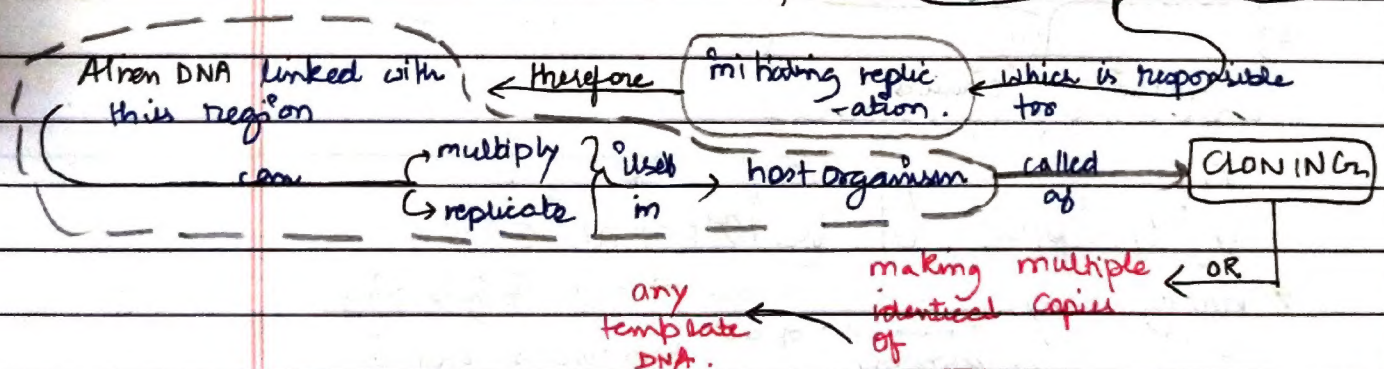 Alien DNA linked with
this region
therefore
initiating replic
-ation.
which is responsible
for
can
multiply
replicate
itself
in
host organism
called
as
CLONING
OR
making multiple
identical copies
of
any
template
DNA.